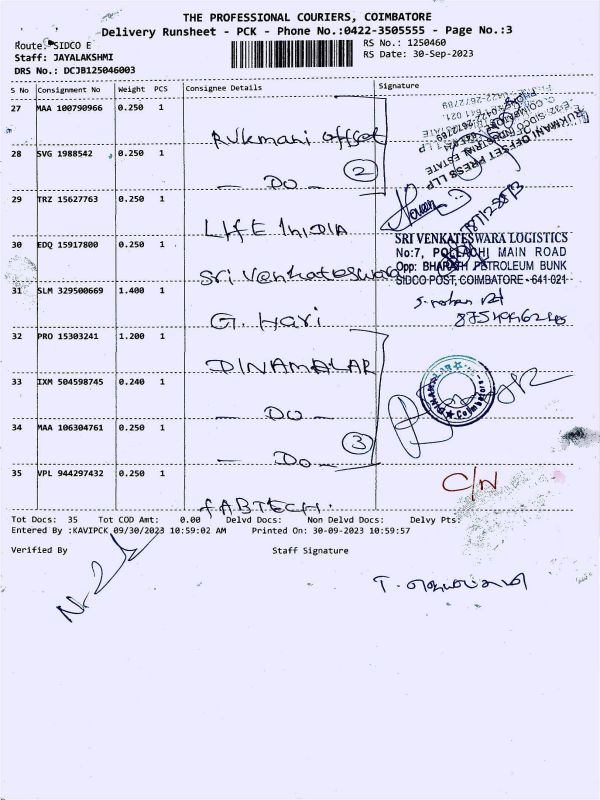 THE PROFESSIONAL COURIERS, COIMBATORE
Delivery Runsheet - PCK - Phone No.:0422-3505555 - Page No.:3
Route: SIDCO E
RS No.: 1250460
Staff: JAYALAKSHMI
RS Date: 30-Sep-2023
DRS No.: DCJB125046003
S No Consignment No Weight PCS Consignee Details Signature
27 MAA 100790966 0.250 1
Rukmani offset
RUKMANI OFFSET PRESS LLP
28 SVG 1988542 0.250 1
- Do - 2
29 TRZ 15627763 0.250 1
LIFE INDIA
30 EDQ 15917800 0.250 1
Sri Venkateswara
SRI VENKATESWARA LOGISTICS
No:7, POLLACHI MAIN ROAD
Opp: BHARATH PETROLEUM BUNK
SIDCO POST, COIMBATORE - 641 021
31 SLM 329500669 1.400 1
G. Hari
32 PRO 15303241 1.200 1
DINAMALAR
DINAMALAR Coimbatore
33 IXM 504598745 0.240 1
- Do -
34 MAA 106304761 0.250 1
- Do - 3
35 VPL 944297432 0.250 1
FABTECH.
C/N
Tot Docs: 35 Tot COD Amt: 0.00 Delvd Docs: Non Delvd Docs: Delvy Pts:
Entered By :KAVIPCK 09/30/2023 10:59:02 AM Printed On: 30-09-2023 10:59:57
Verified By Staff Signature